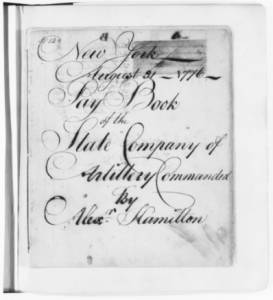 New York
August 31 – 1776 –
Pay Book
of the
State Company of
Artillery Commanded
By
Alexr. Hamilton